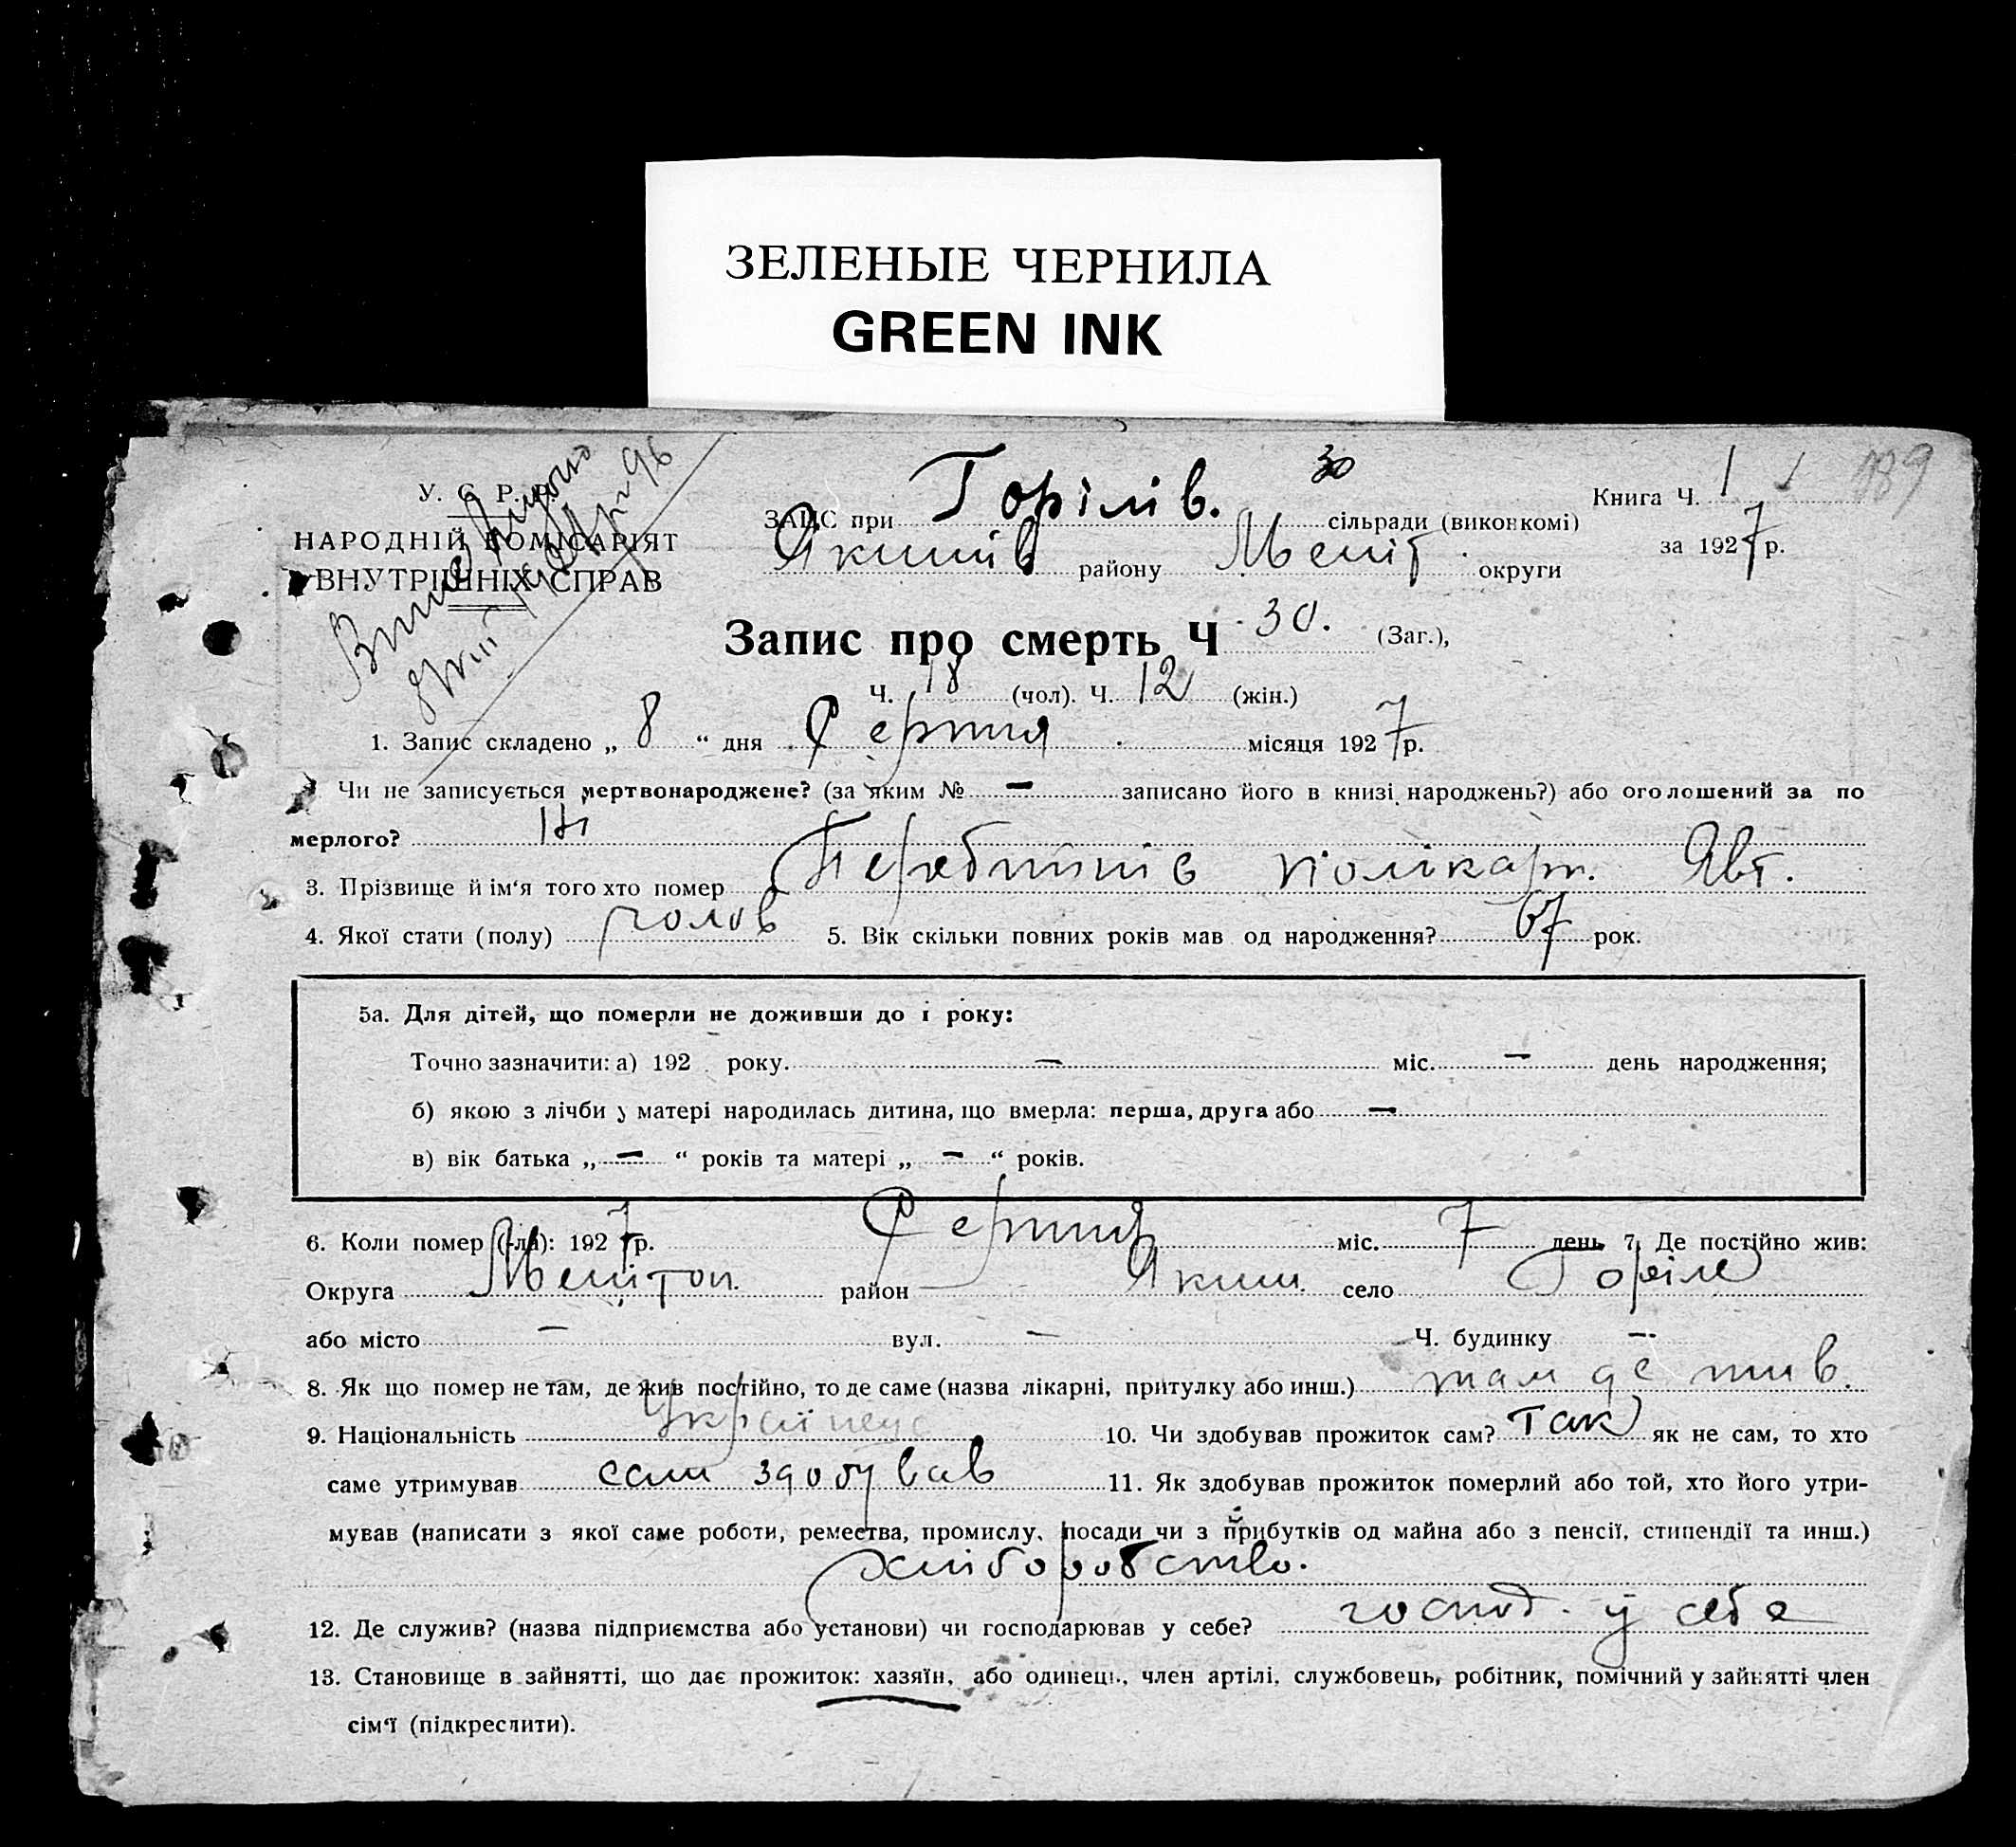 ЗЕЛЕНЫЕ ЧЕРНИЛА
GREEN INK
189
У. С. Р. Р.
НАРОДНІЙ КОМІСАРІЯТ
ВНУТРІШНІХ СПРАВ
30
ЗАГС при Горілів. сільради (виконкомі)
Книга Ч. 1
Якимів району Меліт. округи
за 1927 р.
Запис про смерть Ч 30. (Заг.),
Ч. 18 (чол). Ч. 12 (жін.)
1. Запис складено „ 8 “ дня Серпня місяця 1927 р.
Чи не записується мертвонароджене? (за яким № — записано його в книзі народжень?) або оголошений за по
мерлого? Ні
3. Прізвище й ім‘я того хто помер Полікарп. Явт.
4. Якої стати (полу) чолов 5. Вік скільки повних років мав од народження? 67 рок.
5а. Для дітей, що померли не доживши до 1 року:
Точно зазначити: а) 192 року. — міс. — день народження;
б) якою з лічби у матері народилась дитина, що вмерла: перша, друга або —
в) вік батька „ — “ років та матері „ — “ років.
6. Коли помер (-ла): 1927 р. Серпня міс. 7 день 7. Де постійно жив:
Округа Мелітоп. район Яким. село Горіле
або місто — вул. — Ч. будинку —
8. Як що помер не там, де жив постійно, то де саме (назва лікарні, притулку або инш.) там де жив.
9. Національність Українець 10. Чи здобував прожиток сам? Так як не сам, то хто
саме утримував сам здобував 11. Як здобував прожиток померлий або той, хто його утри-
мував (написати з якої саме роботи, ремества, промислу, посади чи з прибутків од майна або з пенсії, стипендії та инш.)
хліборобство.
12. Де служив? (назва підприємства або установи) чи господарював у себе? господ. у себе
13. Становище в зайнятті, що дає прожиток: хазяїн, або одинець, член артілі, службовець, робітник, помічний у зайнятті член
сім‘ї (підкреслити).